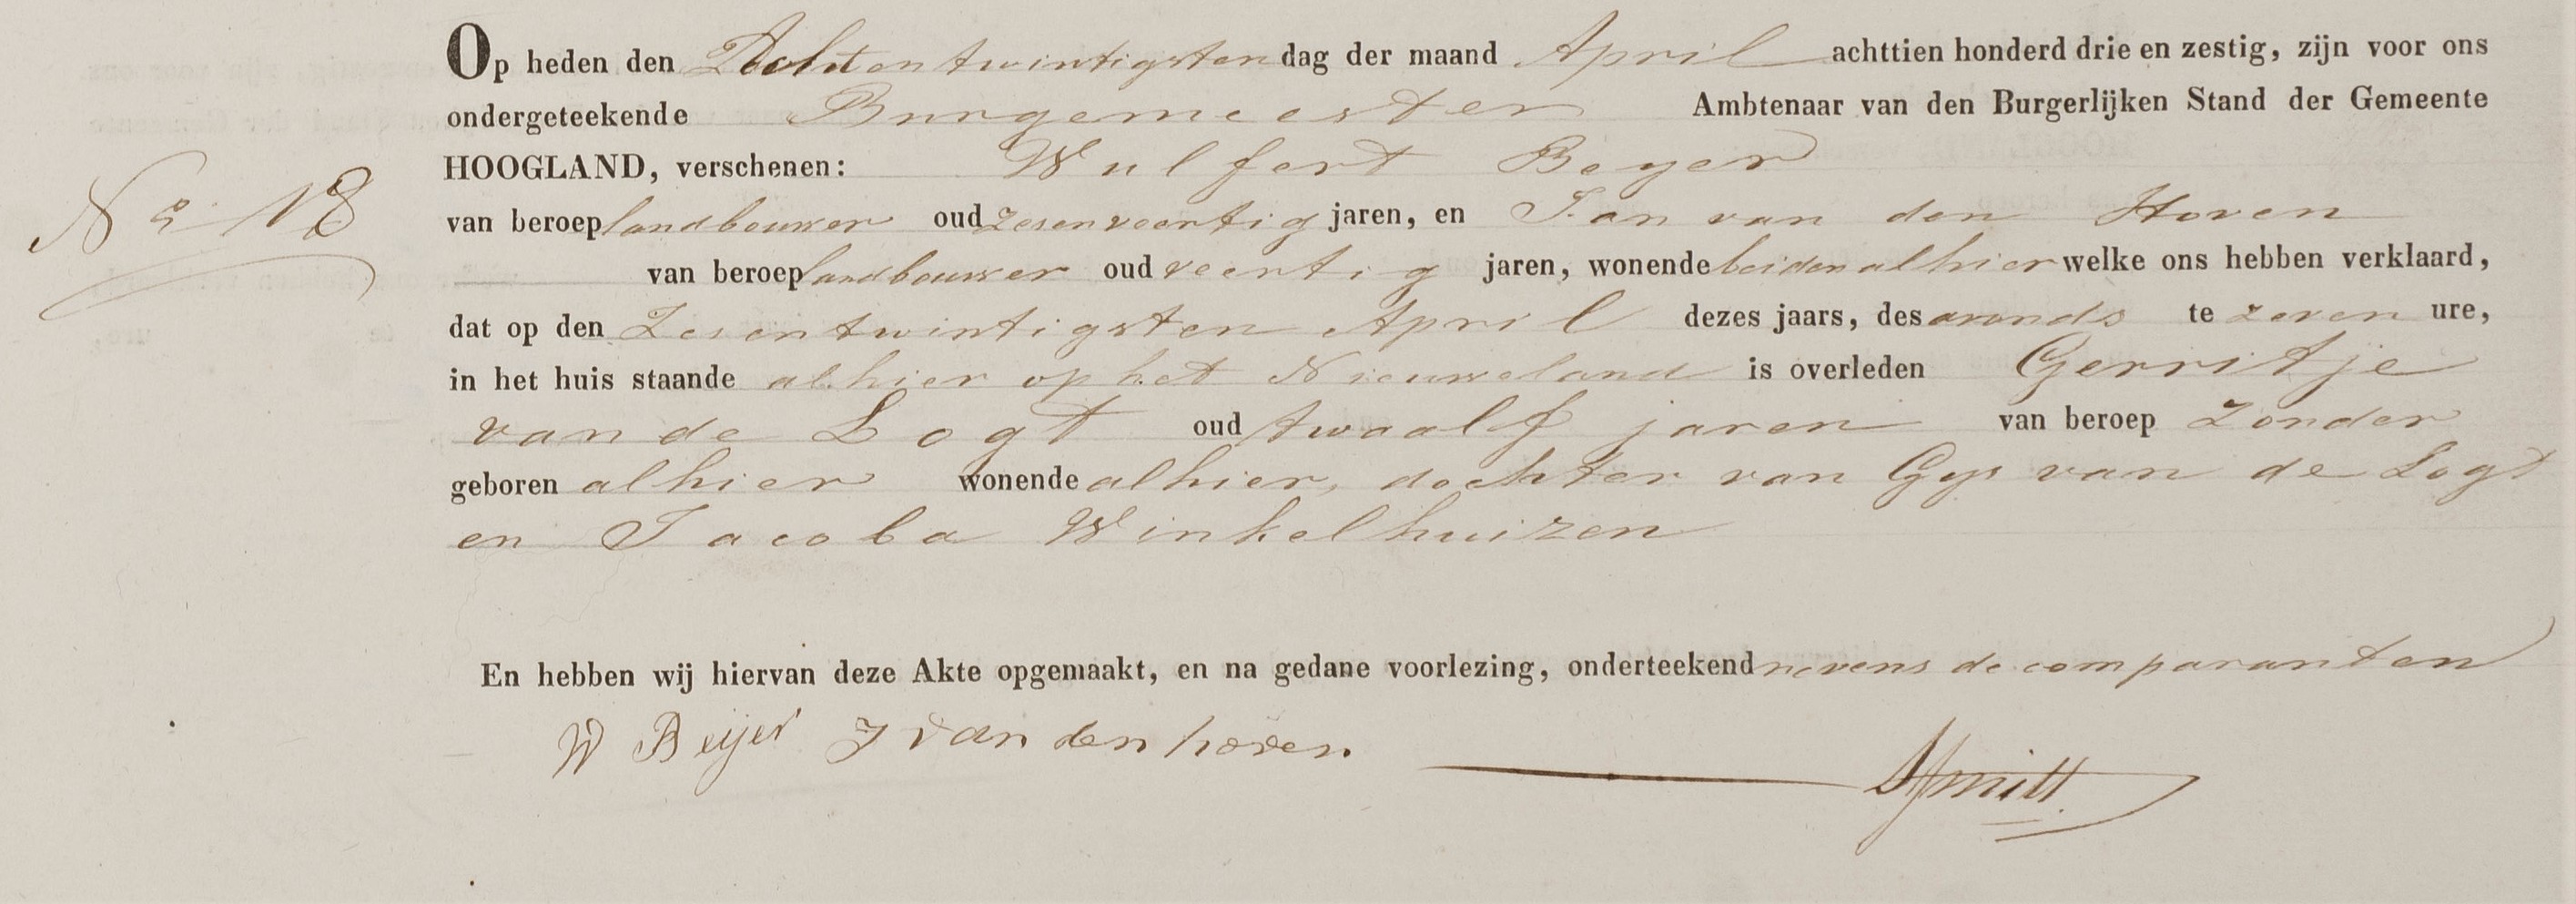 Op heden den Achtentwintigsten dag der maand April achttien honderd drie en zestig, zijn voor ons
ondergeteekende Burgemeester Ambtenaar van den Burgerlijken Stand der Gemeente
HOOGLAND, verschenen: Wulfert Beyer
No 18
van beroep landbouwer oud zesenveertig jaren, en Jan van den Hoven
van beroep landbouwer oud veertig jaren, wonende beiden alhier welke ons hebben verklaard,
dat op den Zesentwintigsten April dezes jaars, des avonds te zeven ure,
in het huis staande alhier op het Nieuweland is overleden Gerritje
van de Logt oud twaalf jaren van beroep Zonder
geboren alhier wonende alhier, dochter van Gys van de Logt
en Jacoba Winkelhuizen
En hebben wij hiervan deze Akte opgemaakt, en na gedane voorlezing, onderteekend nevens de comparanten
W Beijer J van den hoven
Smitt